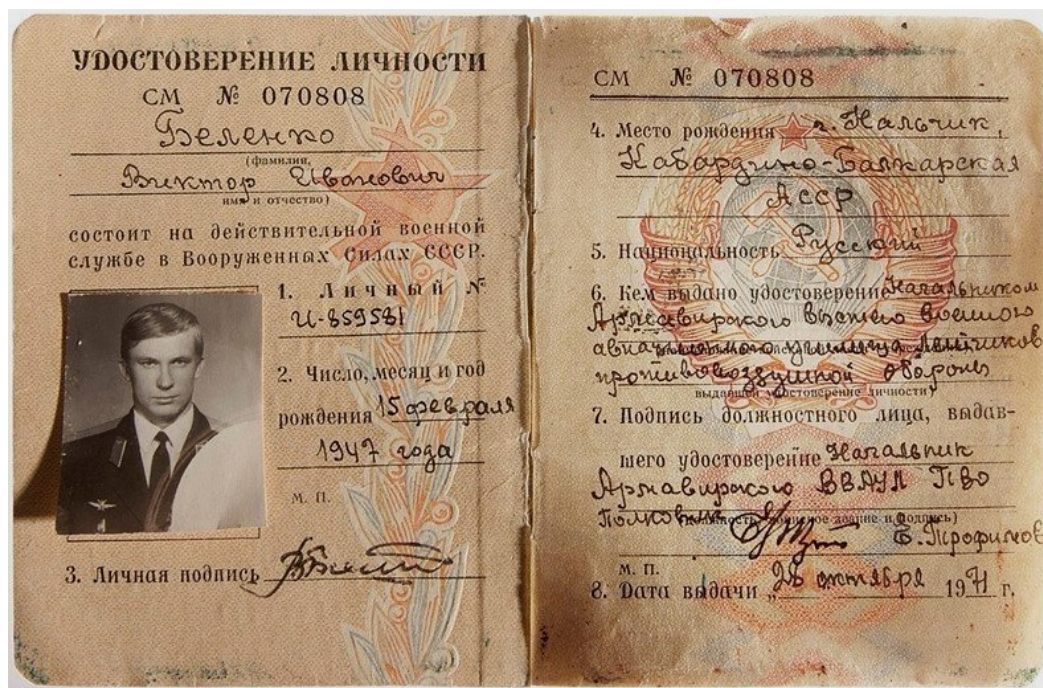 УДОСТОВЕРЕНИЕ ЛИЧНОСТИ
СМ № 070808
Беленко
(фамилия,
Виктор Иванович
имя и отчество)
состоит на действительной военной
службе в Вооруженных Силах СССР.
1. Личный №
И-859581
2. Число, месяц и год
рождения 15 февраля
1947 года
М. П.
3. Личная подпись
СМ № 070808
4. Место рождения г. Нальчик,
Кабардино-Балкарская
АССР
5. Национальность Русский
6. Кем выдано удостоверение Начальником
Армавирского высшего военного
авиационного училища летчиков
противовоздушной обороны
выдавшей удостоверение личности)
7. Подпись должностного лица, выдав-
шего удостоверение Начальник
Армавирского ВВАУЛ ПВО
Полковник (должность, воинское звание и подпись)
Е. Трофимов
М. П.
8. Дата выдачи „28 октября 1971 г.